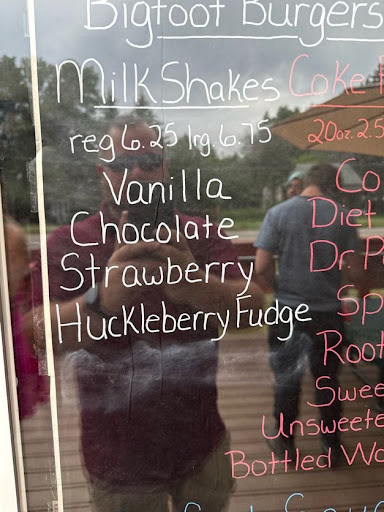 Bigfoot Burgers
Milk Shakes
reg 6.25 lrg 6.75
Vanilla
Chocolate
Strawberry
Huckleberry Fudge
Coke
20oz. 2.5
Co
Diet
Dr. P
Sp
Root
Swee
Unsweete
Bottled Wa